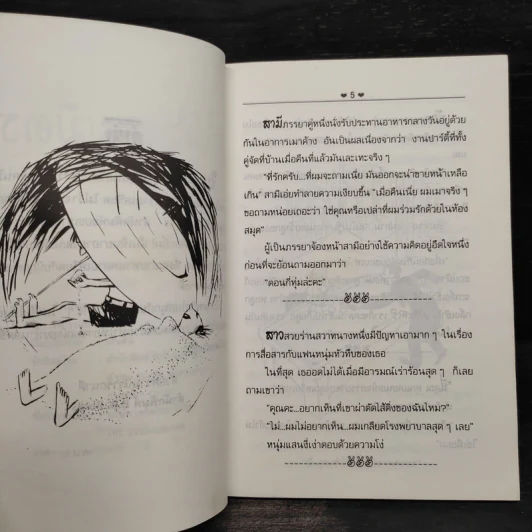 ❤ 5 ❤
สามีภรรยาคู่หนึ่งนั่งรับประทานอาหารกลางวันอยู่ด้วย
กันในอาการเมาค้าง อันเป็นผลเนื่องจากว่า งานปาร์ตี้ที่ทั้ง
คู่จัดที่บ้านเมื่อคืนที่แล้วมันละเทะจริง ๆ
"ที่รักครับ...ที่ผมจะถามเนี่ย มันออกจะน่าขายหน้าเหลือ
เกิน" สามีเอ่ยทำลายความเงียบขึ้น "เมื่อคืนนี้ ผมเมาจริง ๆ
ขอถามหน่อยเถอะว่า ใช่คุณหรือเปล่าที่ผมร่วมรักด้วยในห้อง
สมุด"
ผู้เป็นภรรยาจ้องหน้าสามีอย่างใช้ความคิดอยู่อึดใจหนึ่ง
ก่อนที่จะย้อนถามออกมาว่า
"ตอนกี่ทุ่มล่ะคะ"
สาวสวยร่านสวาทนางหนึ่งมีปัญหาเอามาก ๆ ในเรื่อง
การสื่อสารกับแฟนหนุ่มหัวทึบของเธอ
ในที่สุด เธออดไม่ได้เมื่อมีอารมณ์เร่าร้อนสุด ๆ ก็เลย
ถามเขาว่า
"คุณคะ...อยากเห็นที่เขาผ่าตัดไส้ติ่งของฉันไหม?"
"ไม่...ผมไม่อยากเห็น...ผมเกลียดโรงพยาบาลสุด ๆ เลย"
หนุ่มแสนงี่เง่าตอบด้วยความโง่